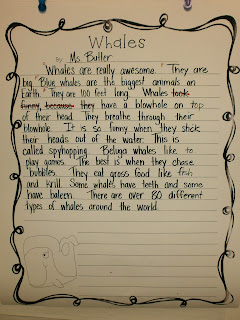 Whales
by Ms. Butler
"Whales are really awesome." They are
big. "Blue whales are the biggest animals on
earth." They are 100 feet long. Whales look
funny, because they have a blowhole on top
of their head. They breathe through their
blowhole. It is so funny when they stick
their heads out of the water. This is
called spyhopping. Beluga whales like to
play games. The best is when they chase
bubbles. They eat gross food like fish
and krill. Some whales have teeth and some
have baleen. There are over 80 different
types of whales around the world.